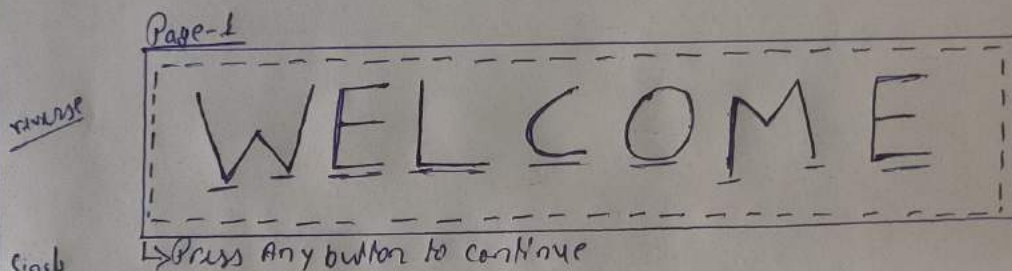 Page-1
reverse
WELCOME
↳Press Any button to continue